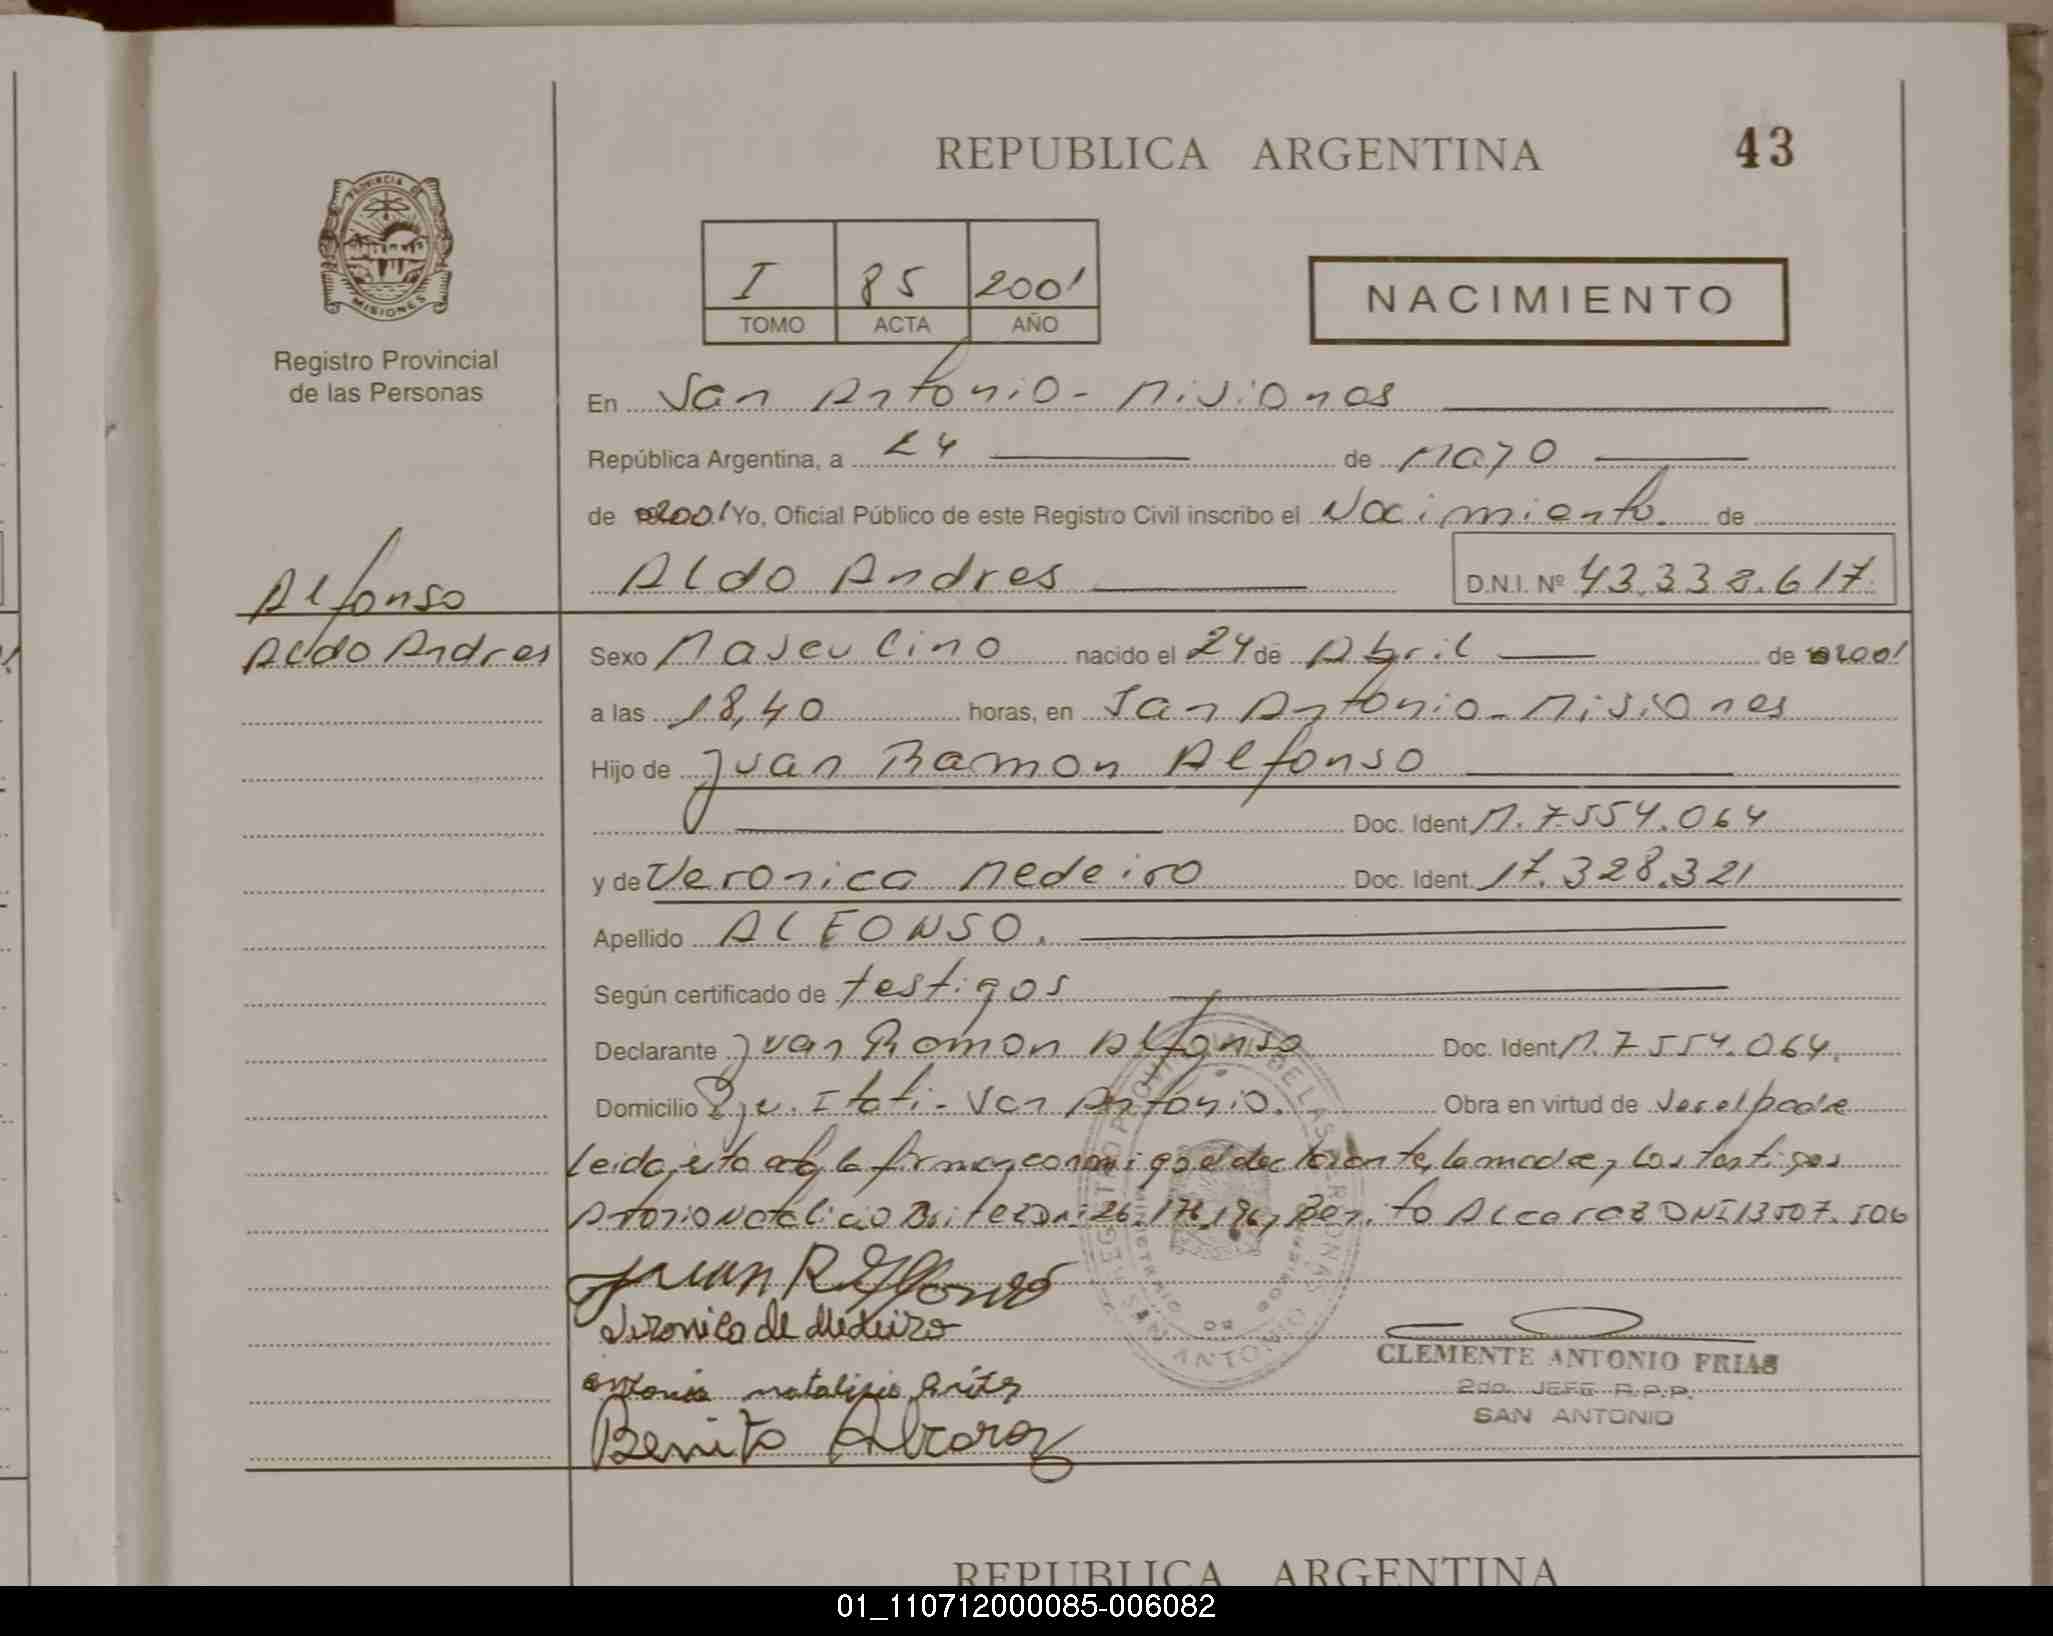 REPUBLICA ARGENTINA
43
PROVINCIA DE
MISIONES
Registro Provincial
de las Personas
I 85 2001
TOMO ACTA AÑO
NACIMIENTO
En San Antonio - Misiones
República Argentina, a 24 de Mayo
de 2001 Yo, Oficial Público de este Registro Civil inscribo el Nacimiento. de
Aldo Andres D.N.I. Nº 43.338.617
Alfonso
Aldo Andres
Sexo Masculino nacido el 24 de Abril de 2001
a las 18,40 horas, en San Antonio - Misiones
Hijo de Juan Ramon Alfonso
Doc. Ident M. 7.554.064
y de Veronica Medeiro Doc. Ident. 17.328.321
Apellido ALFONSO.
Según certificado de testigos
Declarante Juan Ramon Alfonso Doc. Ident M. 7.554.064.
Domicilio Pje. Itati - San Antonio. Obra en virtud de ser el padre
Leida esta acta la firman conmigo el declarante, la madre y los testigos
Antonio Natalicio Britez DNI 26.176.196 y Benito Alcaraz DNI 13.507.506
Juan R Alfonso
Veronica de Medeiro
antonio natalicio Britez
Benito Alcaraz
CLEMENTE ANTONIO FRIAS
2do. JEFE R.P.P.
SAN ANTONIO
REPUBLICA ARGENTINA
01_110712000085-006082